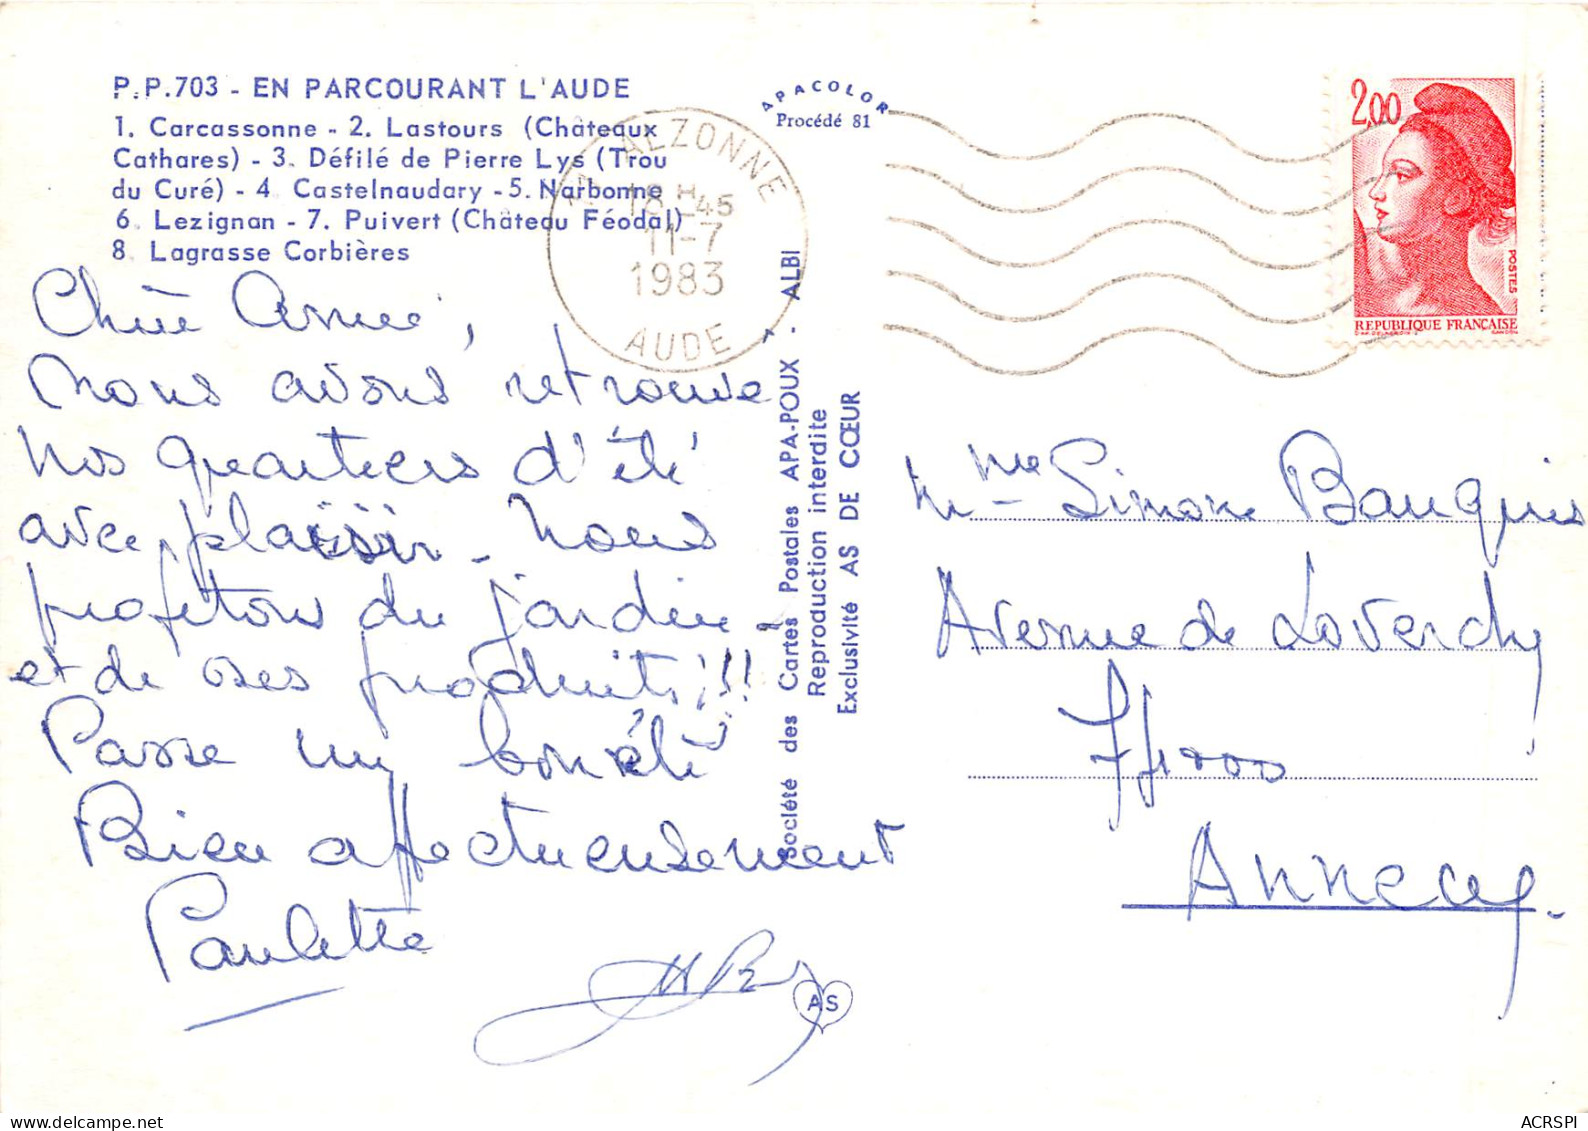 P.P.703 - EN PARCOURANT L'AUDE
1. Carcassonne - 2. Lastours (Châteaux
Cathares) - 3. Défilé de Pierre Lys (Trou
du Curé) - 4. Castelnaudary - 5. Narbonne
6. Lezignan - 7. Puivert (Château Féodal)
8. Lagrasse Corbières
Chère Amie,
nous avons retrouvé
nos quartiers d'été
avec plaisir. Nous
profitons du jardin
et de ses produits!!!
Passe un bon été
Bien affectueusement
Paulette
APACOLOR
Procédé 81
ALZONNE
18 H 45
11-7
1983
AUDE
Société des Cartes Postales APA-POUX - ALBI
Reproduction interdite
Exclusivité AS DE CŒUR
AS
2,00
POSTES
REPUBLIQUE FRANÇAISE
Mme Simone Bauquis
Avenue de Loverchy
74000
ANNECY.
ACRSPI